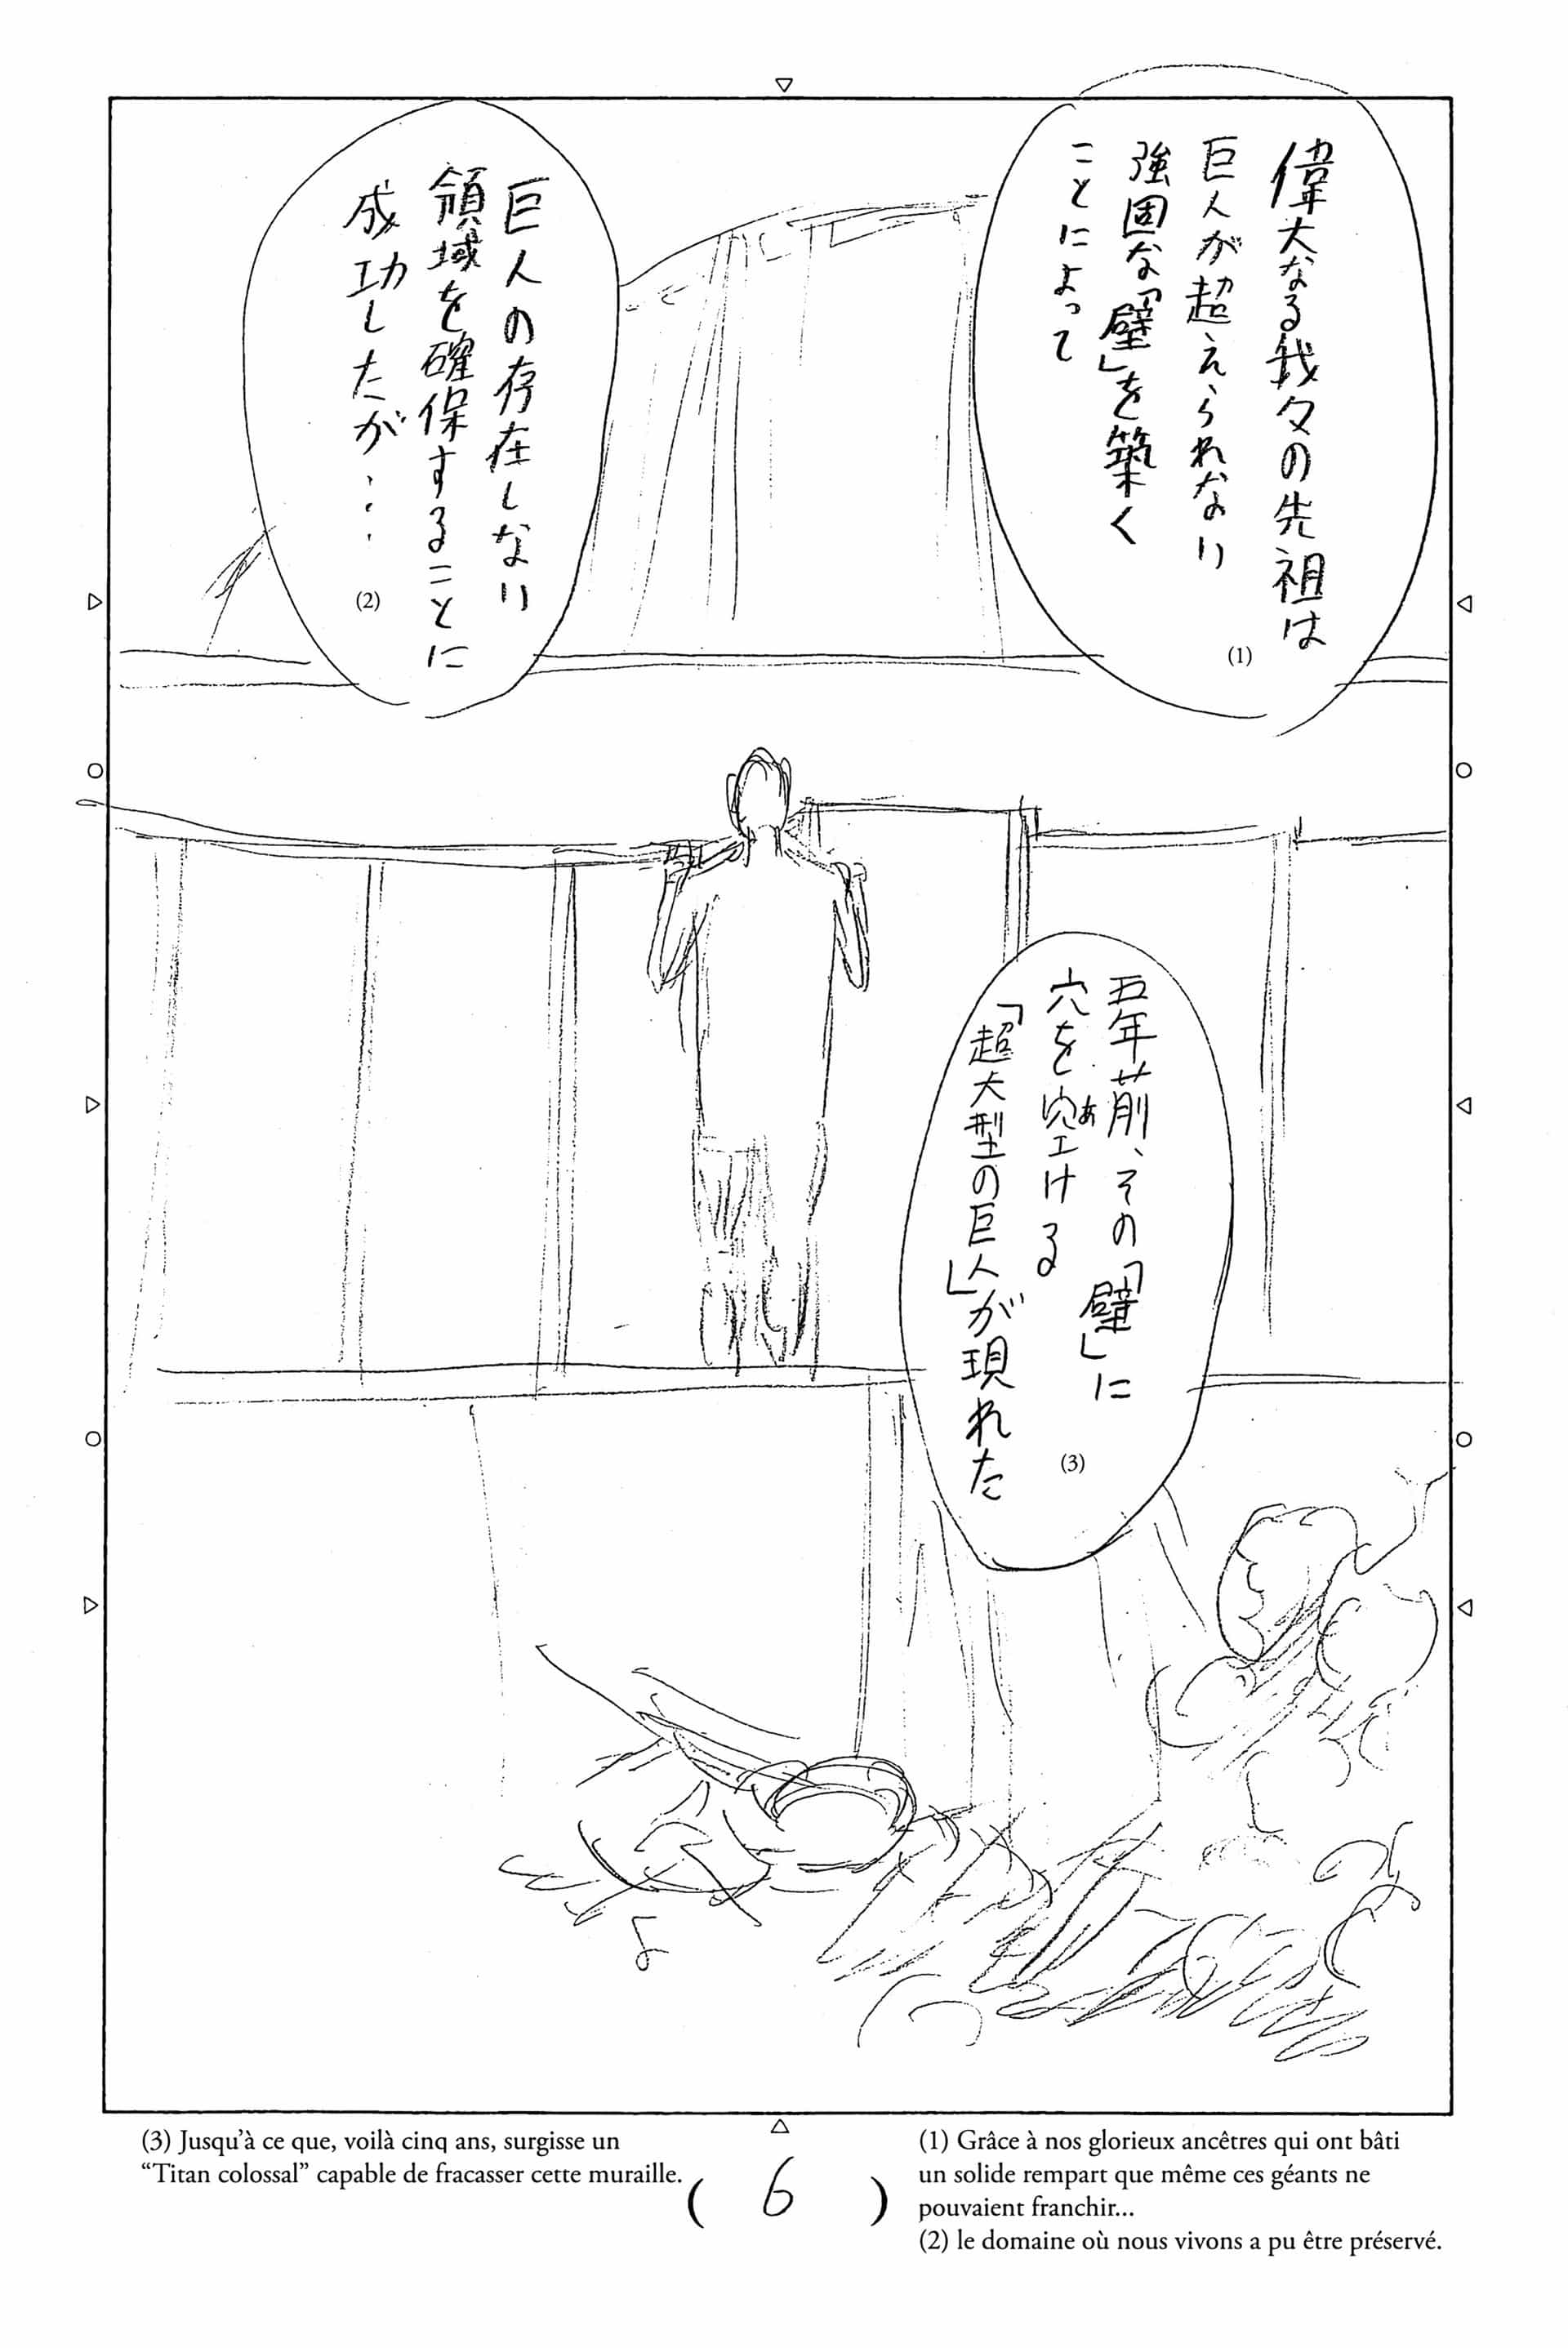 偉大なる我々の先祖は
巨人が超えられない
強固な「壁」を築く
ことによって
(1)
巨人の存在しない
領域を確保することに
成功したが・・・
(2)
五年前、その「壁」に
穴を空ける
あ
「超大型の巨人」が現れた
(3)
(3) Jusqu’à ce que, voilà cinq ans, surgisse un
“Titan colossal” capable de fracasser cette muraille.
( 6 )
(1) Grâce à nos glorieux ancêtres qui ont bâti
un solide rempart que même ces géants ne
pouvaient franchir...
(2) le domaine où nous vivons a pu être préservé.